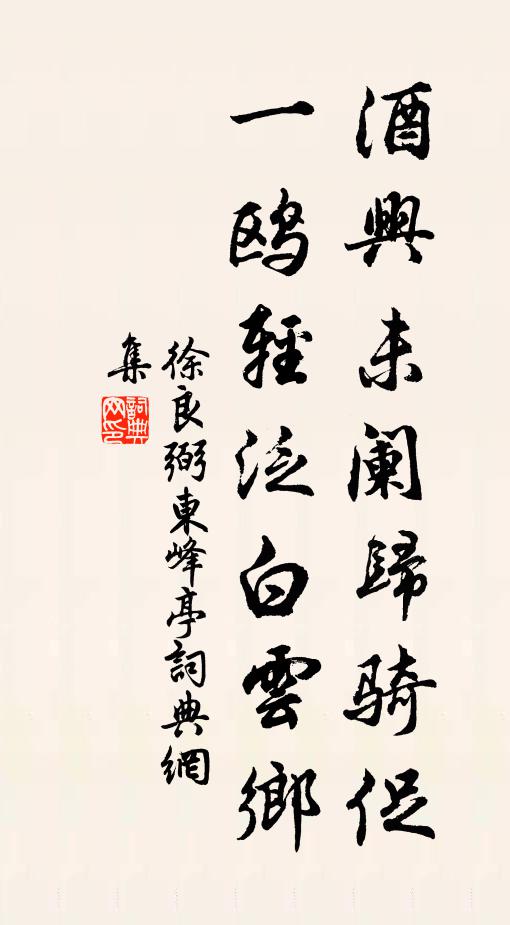 酒興未闌歸騎促
一鸥輕泛白雲鄉
徐良弼東峰亭詞典網
集
詞典网印